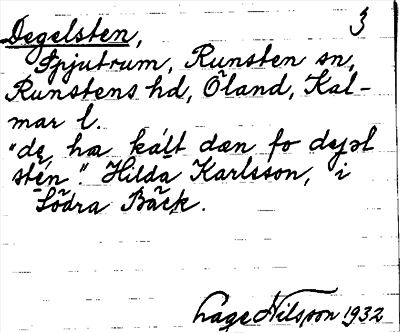 3
Degelsten,
Spjutrum, Runsten sn,
Runstens hd, Öland, Kal-
mar l.
"de ha kált dæn fo dejəl
stén". Hilda Karlsson, i
Södra Bäck.
Lage Nilsson 1932